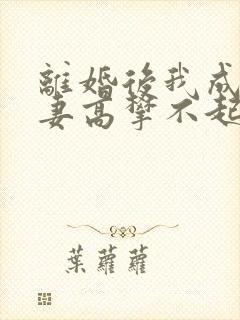 離婚後我成
妻高攀不起
葉蘿蘿